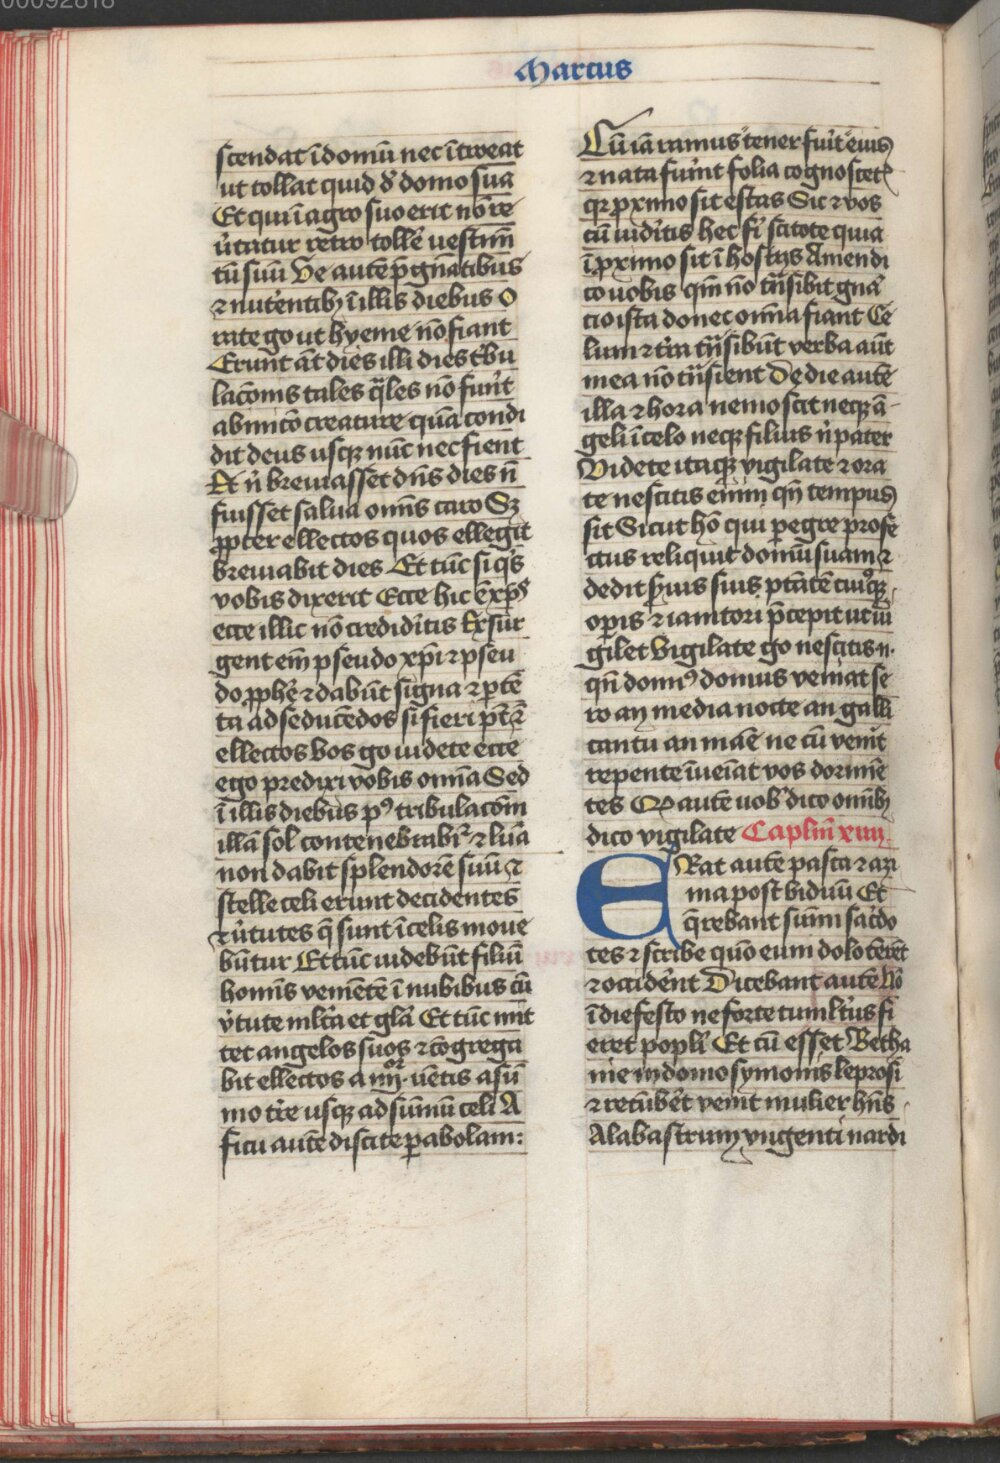 00092818
Marcus
scendat ī domū nec ītroeat
ut tollat quid đ domo sua
Et qui ī agro suo erit nō re
ůtatur retro tolle᷑ uestim̄
tū suū Ve autē p̄gnātibus
⁊ nut᷑entibꝫ ī illis diebus O
rate g̊o ut hyeme nō fiant
Erunt āt dies illi dies t᷑bu
lac̄onis tales q̄les nō fu᷑nt
ab initō creature quā condi
dit deus usqꝫ nūc nec fient
Et n̊ breuiasset dn̄s dies n̄
fuisset salua om̄is caro Sꝫ
ꝓpter ellectos quos ellegit
breuiabit dies Et tūc si q̊s
vobis dixerit Ecce hic ē xp̄s
ecce illic nō credid᷑itis Exsur
gent em̄ pseudo xp̄i ⁊ pseu
do ꝓphe᷑ ⁊ dabūt signa ⁊ ꝑtē
ta ad seducēdos si fieri pt̄ ⁊̄
ellectos Vos g̊o uidete ecce
ego predixi vobis om̄ia Sed
ī illis diebus pꝰ tribulac̄om
illā sol contenebrabit᷑ ⁊ luā
non dabit splendorē suū ⁊
stelle celi erunt decidentes
⁊ ůtutes q̄ sunt ī celis moue
būtur Et tūc uidebūt filiū
homīs venīetē ī nubibus cū
v᷑tute ml̄ta et gl̄a Et tūc mit
tet angelos suos ⁊ cōgrega
bit ellectos a iiijor uētis a sū
mo t᷑re usqꝫ ad sūmū celi A
ficu autē discite ꝑabolam:
Cū iā ramus tener fu᷑it eius
⁊ nata fu᷑int folia cognoscet᷑
qꝛ ꝓximo sit estas Sic ⁊ vos
cū uid᷑itis hec fi᷑ scitote quia
ī ꝓximo sit ī hostijs Amen di
co uobis qm̄ nō tn̄sibit gn̄a
cio ista donec om̄ia fiant Ce
lum ⁊ t᷑ra tn̄sibūt verba aūt
mea nō tn̄sient De die autē
illa ⁊ hora nemo scit neqꝫ ā
geli ī celo neqꝫ filius n̊ pater
Videte itaqꝫ vigilate ⁊ ora
te nescitis enim qn̄ tempus
sit Sicut hō qui ꝑegre profe
ctus reliquit domū suam ⁊
dedit s᷑uis suis ptātē cuiꝰqꝫ
oꝑis ⁊ ianitori p̄cepit ut ui
gilet Vigilate g̊o nescitis .n.
qn̄ domꝰ domus veniat se
ro an media nocte an galli
cantu an maē ne cū ven᷑it
repente īueīat vos dormīe
tes Qđ autē uob᷑ dico om̄ibꝫ
dico vigilate Caplm̄ xiiij
ERat autē pasca ⁊ azi
ma post biduū Et
q̄rebant sūmi sac᷑do
tes ⁊ scribe quō eum dolo tēret
⁊ occid᷑ent Dicebant autē nō
ī die festo ne forte tumlt᷑us fi
eret popl̄i Et cū esset Betha
nie in domo symonis leprosi
⁊ recūb᷑et venit mulier hn̄s
Alabastrum vngenti nardi